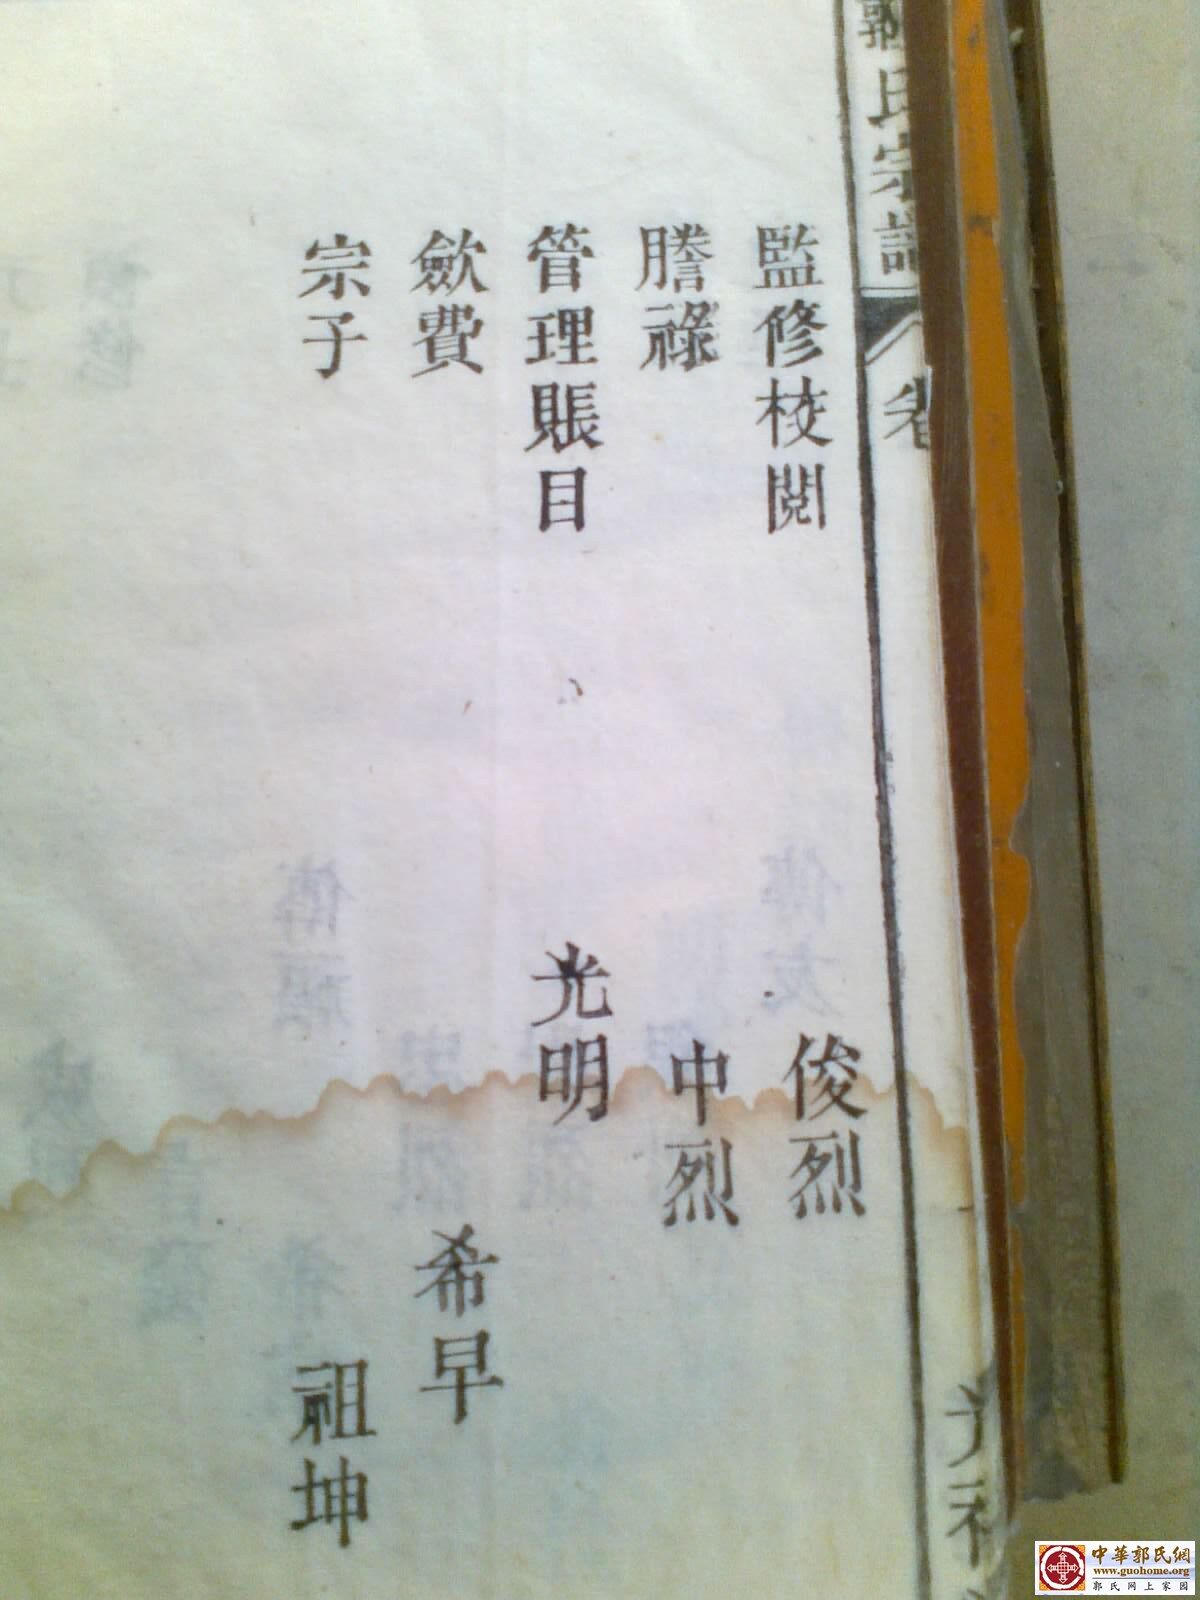 郭氏宗譜
卷
監修校閱 俊烈
謄祿 中烈
管理賬目 光明
斂費 希早
宗子 祖坤
中華郭氏網
www.guohome.org
郭氏网上家园